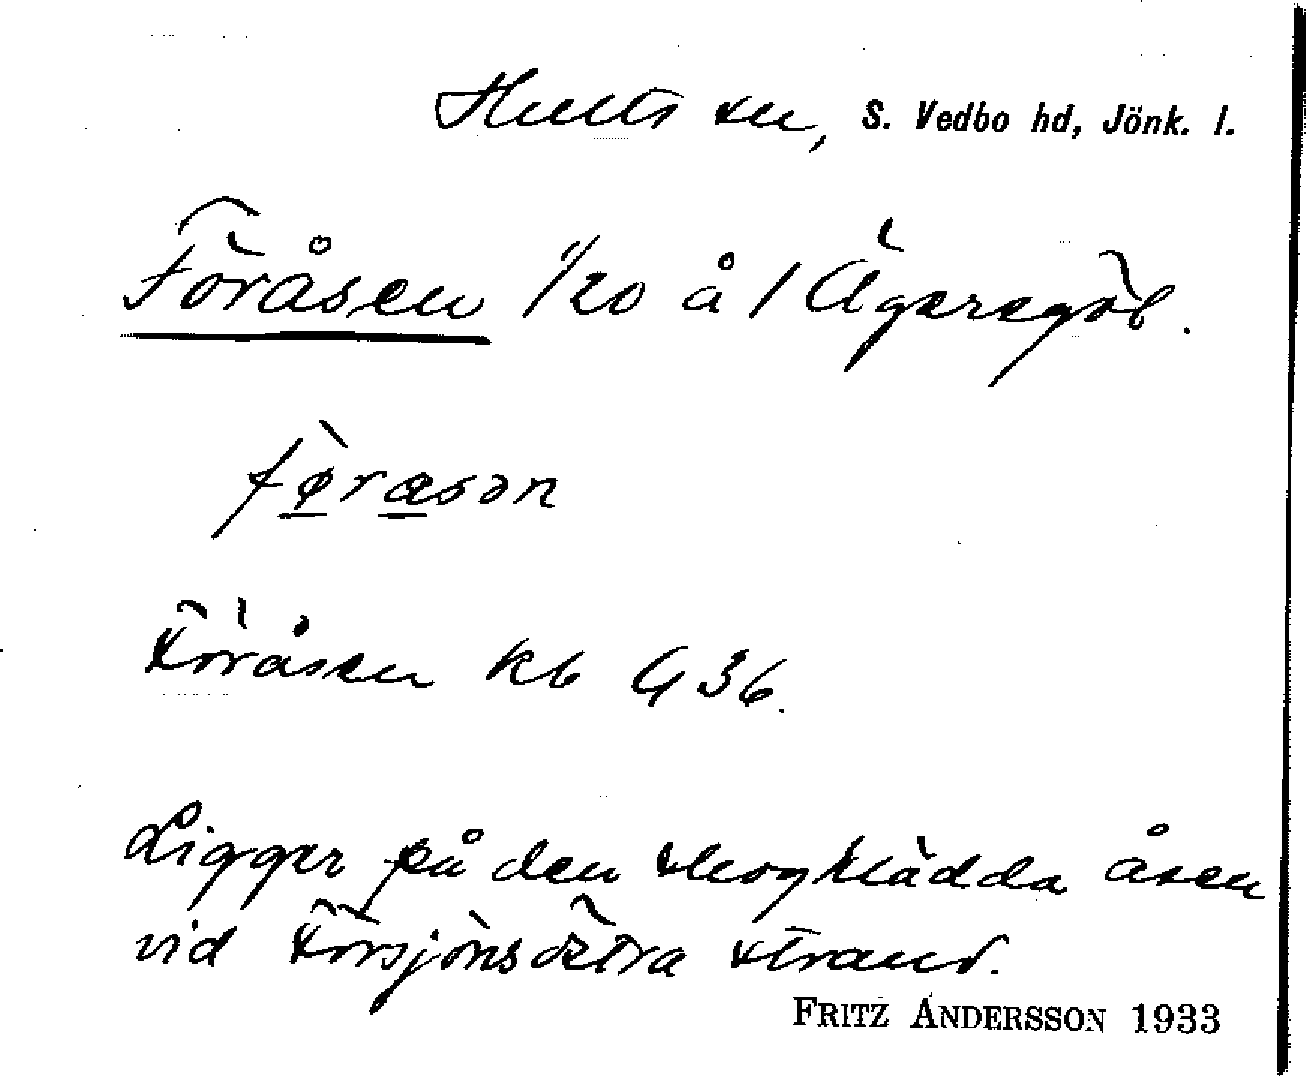 Hults sn, S. Vedbo hd, Jönk. l.
Föråsen 1/20 å 1 Ägersgöl.
føræsən
Föråsen kb G 36.
Ligger på den skogklädda åsen
vid Försjöns östra strand.
FRITZ ANDERSSON 1933